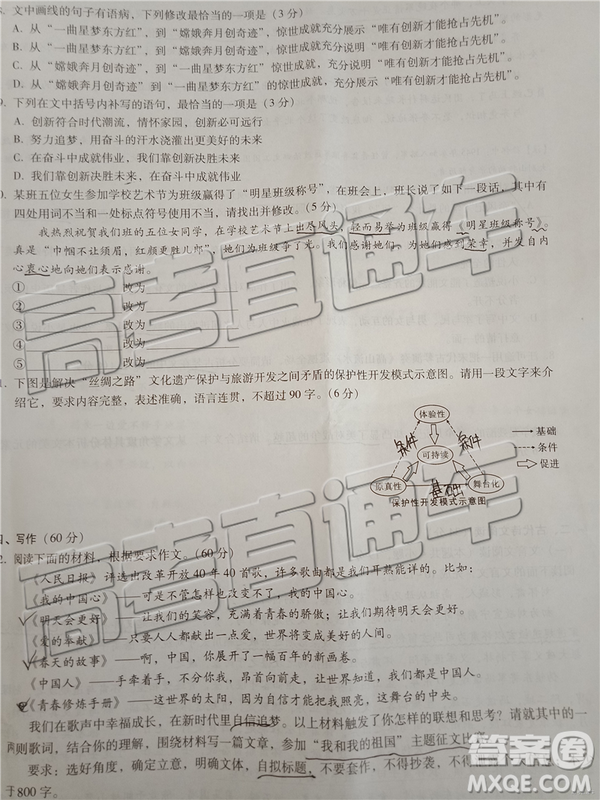 文中画线的句子有语病，下列修改最恰当的一项是（3分）
A. 从“一曲星梦东方红”，到“嫦娥奔月创奇迹”，惊世成就，充分展示“唯有创新才能抢占先机”。
B. 从“一曲星梦东方红”，到“嫦娥奔月创奇迹”，惊世成就，充分展现“唯有创新才能抢占先机”。
C. 从“嫦娥奔月创奇迹”，到“一曲星梦东方红”，惊世成就，充分展现“唯有创新才能抢占先机”。
D. 从“嫦娥奔月创奇迹”到“一曲星梦东方红”的惊世成就，充分展示“唯有创新才能抢占先机”。
下列在文中括号内补写的语句，最恰当的一项是（3分）
A. 创新符合时代潮流，情怀创新必可远行
B. 努力追梦，用奋斗的汗水浇灌出更美的未来
C. 在奋斗中成就伟业，我们靠创新决胜未来
D. 我们靠创新决胜未来，在奋斗中成就伟业
某班五位女生参加学校艺术节为班级赢得了“明星班级称号”，在班会上，班长说了如下一段话，其中有
四处用词不当和一处标点符号使用不当，请找出并修改。（5分）
我热烈祝贺我们班的五位女同学，在学校艺术节上出尽风头，轻而易举为班级赢得《明星班级称号》。
真是“巾帼不让须眉，红颜更胜儿郎”，她们为班级争了光。我们感谢她们，为她们感到荣幸，并发自内
心衷心地向她们表示感谢。
① 改为
② 改为
③ 改为
④ 改为
⑤ 改为
下图是解决“丝绸之路”文化遗产保护与旅游开发之间矛盾的保护性开发模式示意图。请用一段文字来介
绍它，要求内容完整，表述准确，语言连贯，不超过90字。（6分）
体验性
条件
条件
可持续
原真性
基础
舞台化
基础
条件
促进
保护性开发模式示意图
四、写作（60分）
阅读下面的材料，根据要求作文。（60分）
《人民日报》评选出改革开放40年40首歌，许多歌曲都是我们耳熟能详的。比如：
《我的中国心》——可是不管怎样也改变不了，我的中国心。
《明天会更好》——让我们的笑容，充满着青春的骄傲；让我们期待明天会更好。
《爱的奉献》——只要人人都献出一点爱，世界将变成美好的人间。
《春天的故事》——啊，中国，你展开了一幅百年的新画卷。
《中国人》——手牵着手不分你我，昂首向前走，让世界知道，我们都是中国人。
《青春修炼手册》——这世界的太阳，因为自信才能把我照亮，这舞台的中央。
我们在歌声中幸福成长，在新时代里自信追梦。以上材料触发了你怎样的联想和思考？请就其中的一
两则歌词，结合你的理解，围绕材料写一篇文章，参加“我和我的祖国”主题征文比赛。
要求：选好角度，确定立意，明确文体，自拟标题，不要套作，不得抄袭，
于800字。
高考直通车
高考直通车
答案圈
MXQE.COM